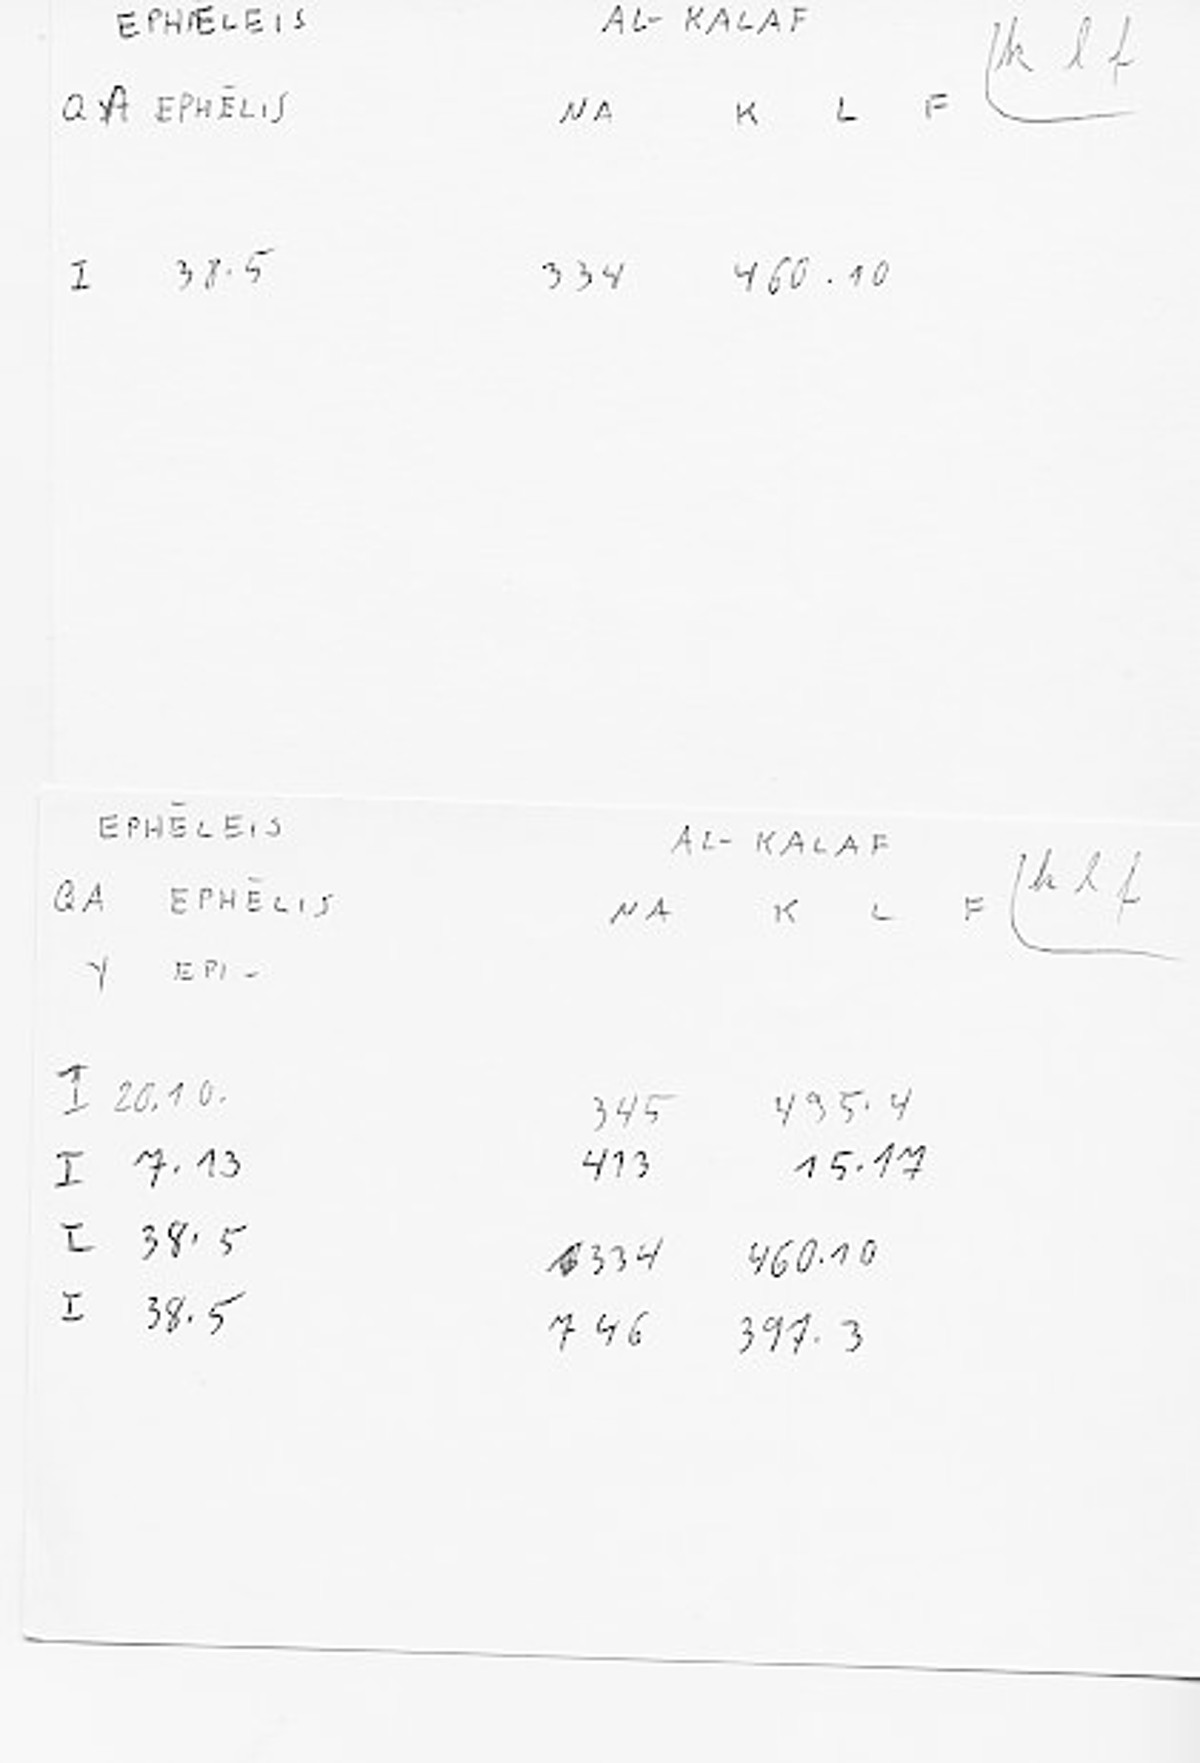 EPHĒLEIS AL-KALAF k l f
QA EPHĒLIS NA K L F
I 38.5 334 460.10
EPHĒLEIS AL-KALAF k l f
QA EPHĒLIS NA K L F
Y EPI-
I 20.10. 345 495.4
I 7.13 413 15.17
I 38.5 334 460.10
I 38.5 746 397.3